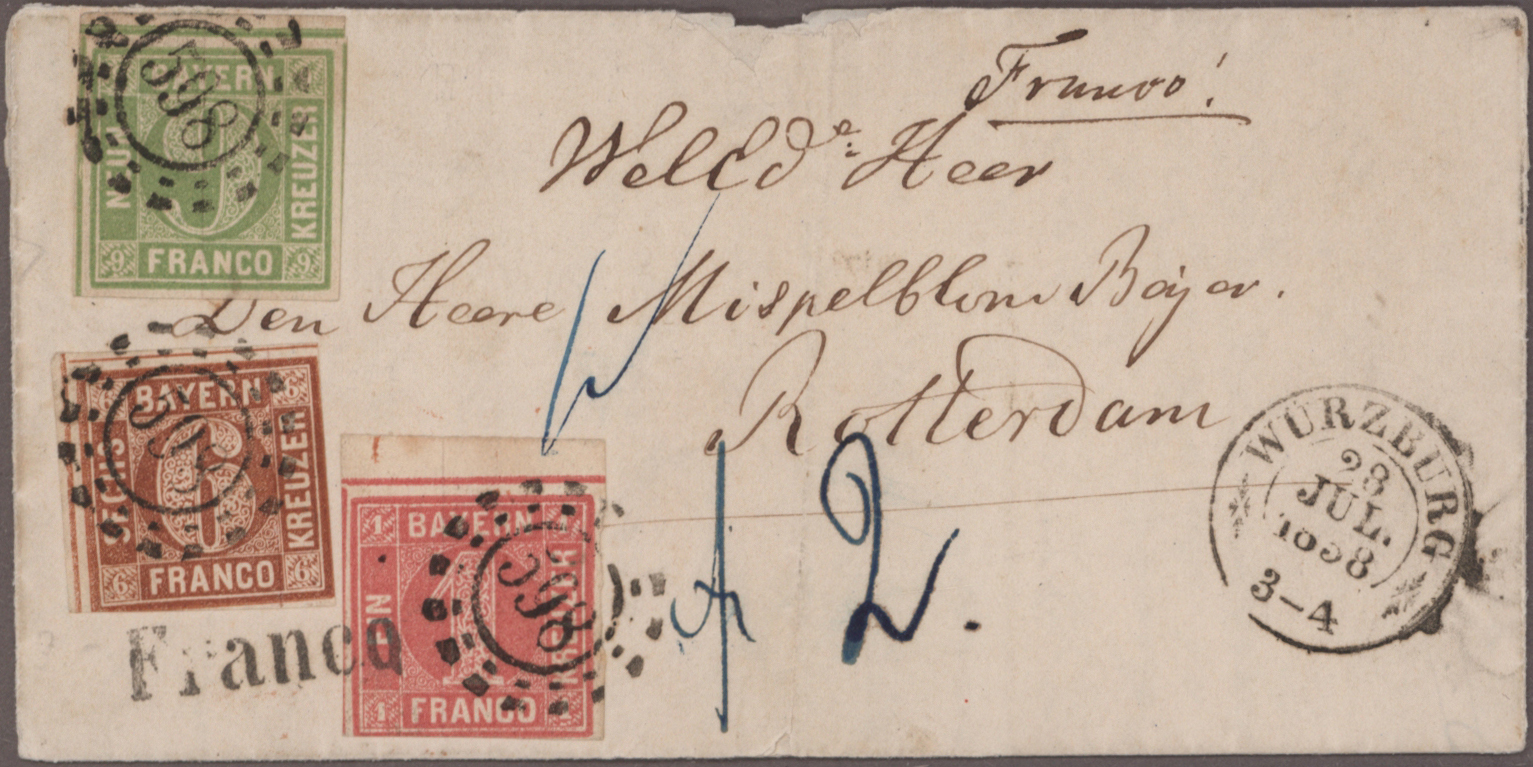 Franco!
WelEd.e Heer
Den Heere Mispelblom Beijer.
Rotterdam
2.
598
BAYERN
NEUN
KREUZER
9 FRANCO 9
598
BAYERN 6
SECHS
6
KREUZER
6 FRANCO 6
598
1 BAYERN
EIN
1
KREUZER
1 FRANCO 1
Franco
WÜRZBURG
28
JUL.
1858
3-4